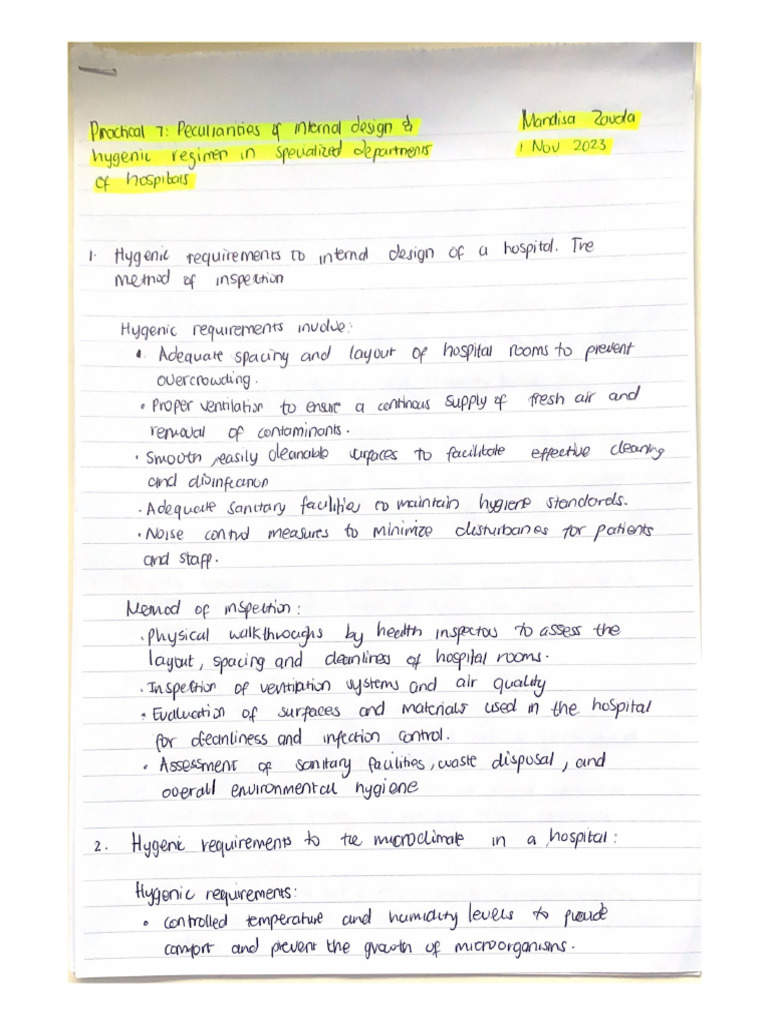 Practical 7: Peculiarities of internal design & Mandisa Zavola
hygenic regimen in specialized departments 1 Nov 2023
of hospitals
1. Hygenic requirements to internal design of a hospital. The
method of inspection
Hygenic requirements involve:
• Adequate spacing and layout of hospital rooms to prevent
overcrowding.
• Proper ventilation to ensure a continous supply of fresh air and
removal of contaminants.
• Smooth, easily cleanable surfaces to facilitate effective cleaning
and disinfection
• Adequate sanitary facilities to maintain hygiene standards.
• Noise control measures to minimize disturbances for patients
and staff.
Method of inspection:
• Physical walkthroughs by health inspectors to assess the
layout, spacing and cleanlines of hospital rooms.
• Inspection of ventilation systems and air quality
• Evaluation of surfaces and materials used in the hospital
for cleanliness and infection control.
• Assessment of sanitary facilities, waste disposal, and
overall environmental hygiene
2. Hygenic requirements to the microclimate in a hospital:
Hygenic requirements:
• controlled temperature and humidity levels to provide
comfort and prevent the growth of microorganisms.